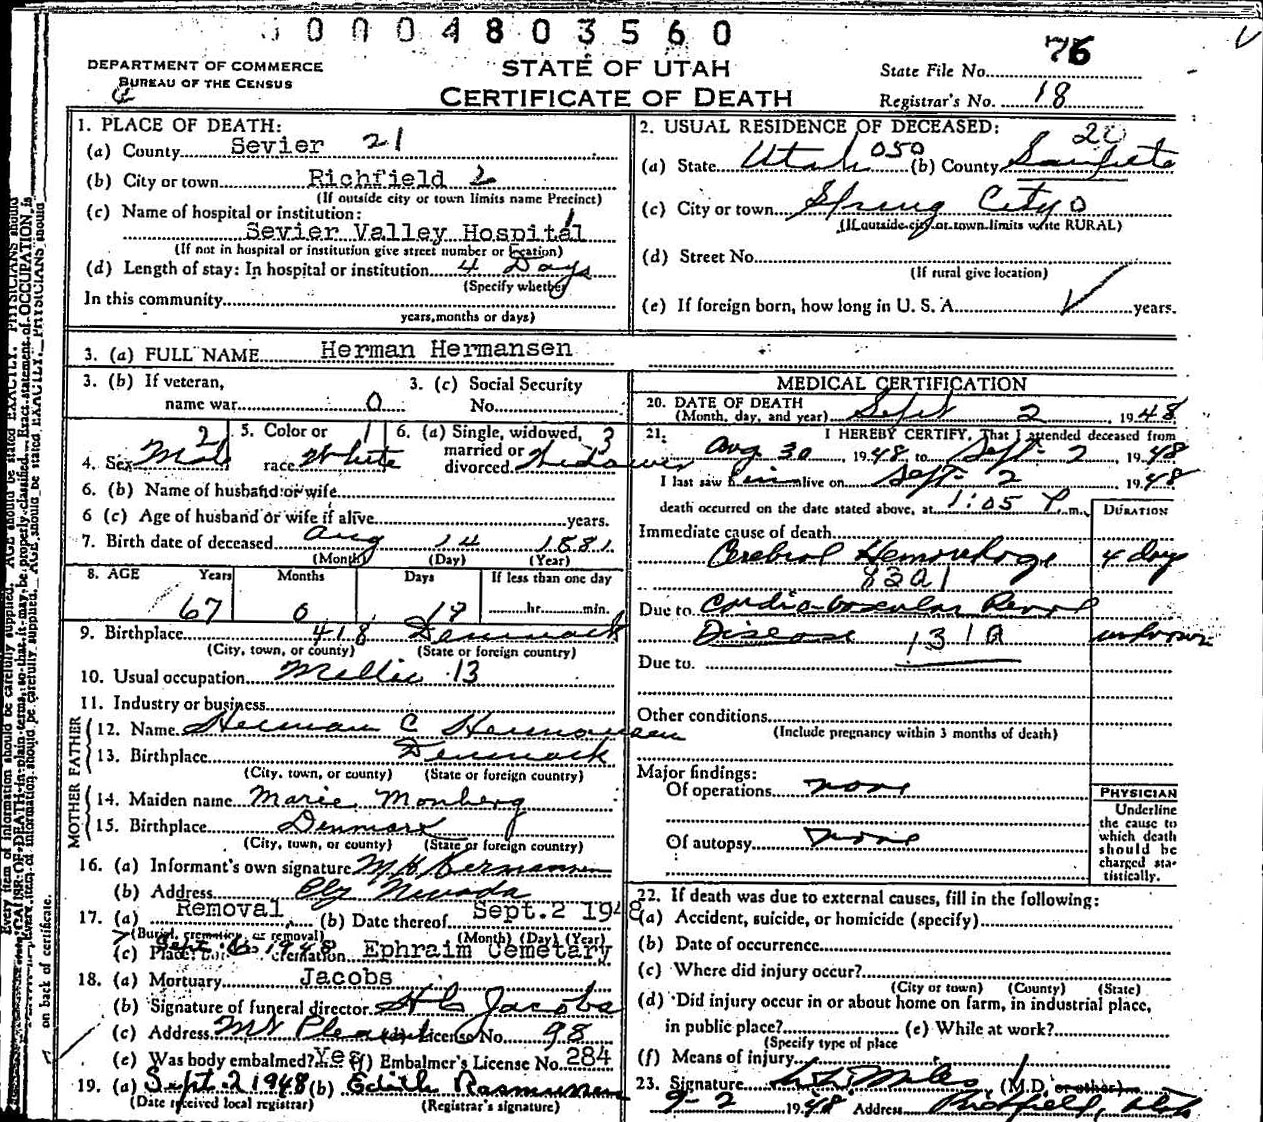 0004803560
DEPARTMENT OF COMMERCE
BUREAU OF THE CENSUS
STATE OF UTAH
CERTIFICATE OF DEATH
State File No. 76
Registrar's No. 18
1. PLACE OF DEATH:
(a) County Sevier 21
(b) City or town Richfield 2
(If outside city or town limits name Precinct)
(c) Name of hospital or institution: 1
Sevier Valley Hospital
(If not in hospital or institution give street number or location)
(d) Length of stay: In hospital or institution 4 Days
(Specify whether
In this community
years, months or days)
2. USUAL RESIDENCE OF DECEASED: 20
(a) State Utah 050 (b) County Sanpete
(c) City or town Spring City 0
(If outside city or town limits write RURAL)
(d) Street No.
(If rural give location)
(e) If foreign born, how long in U. S. A. years.
3. (a) FULL NAME Herman Hermansen
3. (b) If veteran,
name war 0
3. (c) Social Security
No.
4. Sex Male 2
5. Color or 1
race White
6. (a) Single, widowed, 3
married or
divorced Widower
6. (b) Name of husband or wife
6 (c) Age of husband or wife if alive years.
7. Birth date of deceased Aug 14 1881
(Month) (Day) (Year)
8. AGE Years Months Days If less than one day
67 0 19 hr. min.
9. Birthplace 418 Denmark
(City, town, or county) (State or foreign country)
10. Usual occupation Miller 13
11. Industry or business
FATHER
12. Name Herman C Hermansen
13. Birthplace Denmark
(City, town, or county) (State or foreign country)
MOTHER
14. Maiden name Marie Monberg
15. Birthplace Denmark
(City, town, or county) (State or foreign country)
16. (a) Informant's own signature M H Hermansen
(b) Address Ely Nevada
17. (a) Removal (b) Date thereof Sept. 2 1948
(Burial, cremation, or removal) (Month) (Day) (Year)
(c) Place: burial or cremation Ephraim Cemetary
18. (a) Mortuary Jacobs
(b) Signature of funeral director H C Jacobs
(c) Address Mt Pleasant (d) License No. 98
(e) Was body embalmed? Yes (f) Embalmer's License No. 284
19. (a) Sept. 2 1948 (b) Edith Rasmussen
(Date received local registrar) (Registrar's signature)
MEDICAL CERTIFICATION
20. DATE OF DEATH
(Month, day, and year) Sept 2, 1948
21. I HEREBY CERTIFY, That I attended deceased from
Aug 30, 1948 to Sept- 2, 1948
I last saw him alive on Sept- 2, 1948
death occurred on the date stated above, at 1:05 P. m.
DURATION
Immediate cause of death
Cerebral Hemorrhage 4 day
83a1
Due to Cardio-vascular Renal
Disease 131a unknown
Due to
Other conditions
(Include pregnancy within 3 months of death)
Major findings:
Of operations none
Of autopsy none
PHYSICIAN
Underline
the cause to
which death
should be
charged sta-
tistically.
22. If death was due to external causes, fill in the following:
(a) Accident, suicide, or homicide (specify)
(b) Date of occurrence
(c) Where did injury occur?
(City or town) (County) (State)
(d) Did injury occur in or about home on farm, in industrial place,
in public place? (e) While at work?
(Specify type of place
(f) Means of injury
23. Signature Miles (M.D. or other)
9-2 1948 Address Richfield, Utah
on back of certificate.